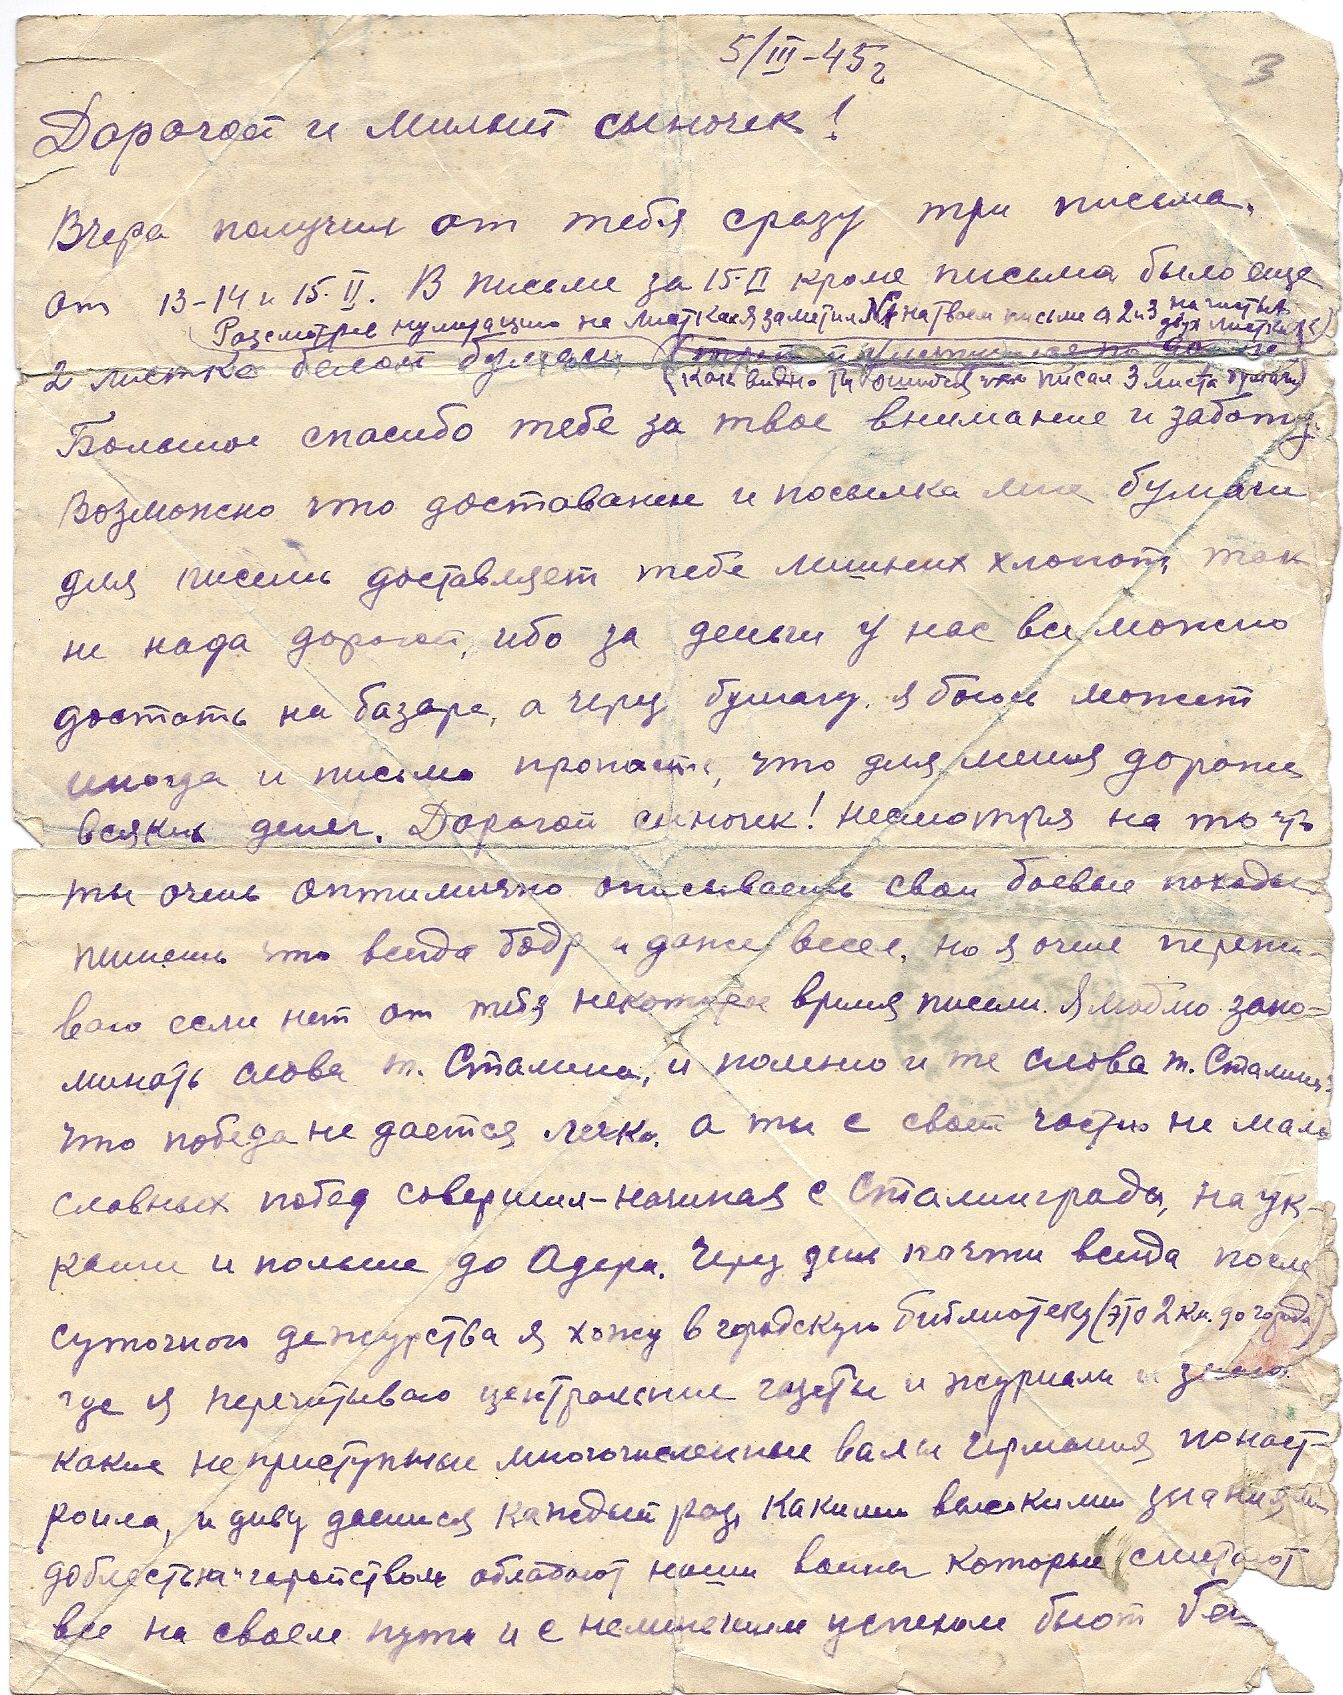 5/III-45г
3
Дорогой и милый сыночек!
Вчера получил от тебя сразу три письма.
От 13-14 и 15.II. В письме за 15.II кроме письма было еще
Рассмотрев нумерацию на листках я заметил № на твоем письме а 2 и 3 на чистых
двух листках
2 листка белой бумаги
(как видно ты ошибся писал 3 листа бумаги)
Большое спасибо тебе за твое внимание и заботу.
Возможно что доставание и посылка мне бумаги
для писем доставляет тебе лишних хлопот, так
не нада дорогой, ибо за деньги у нас все можно
достать на базаре, а через бумагу я боюсь может
иногда и письмо пропасть, что для меня дороже
всяких денег. Дорогой сыночек! Несмотря на то что
ты очень оптимично описываешь свои боевые походы
пишешь что всегда бодр и даже весел, но я очень пережи-
ваю если нет от тебя некоторое время писем. Я люблю запо-
минать слова т. Сталина, и помню и те слова т. Сталина:
что победа не дается легко, а ты с своей частью не мало
славных побед совершил-начиная с Сталинграда, на Ук-
раине и польше до Одера. Через день почти всегда после
суточного дежурства я хожу в городскую библиотеку (это 2 км. до города)
где я перечитываю центральные газеты и журналы и знаю
какие неприступные многочисленные валы германия понаст-
роила, и диву даешься каждый раз, какими высокими знаниями
доблестью и геройством обладают наши воины которые сметают
все на своем пути и с неменьшим успехом бьют